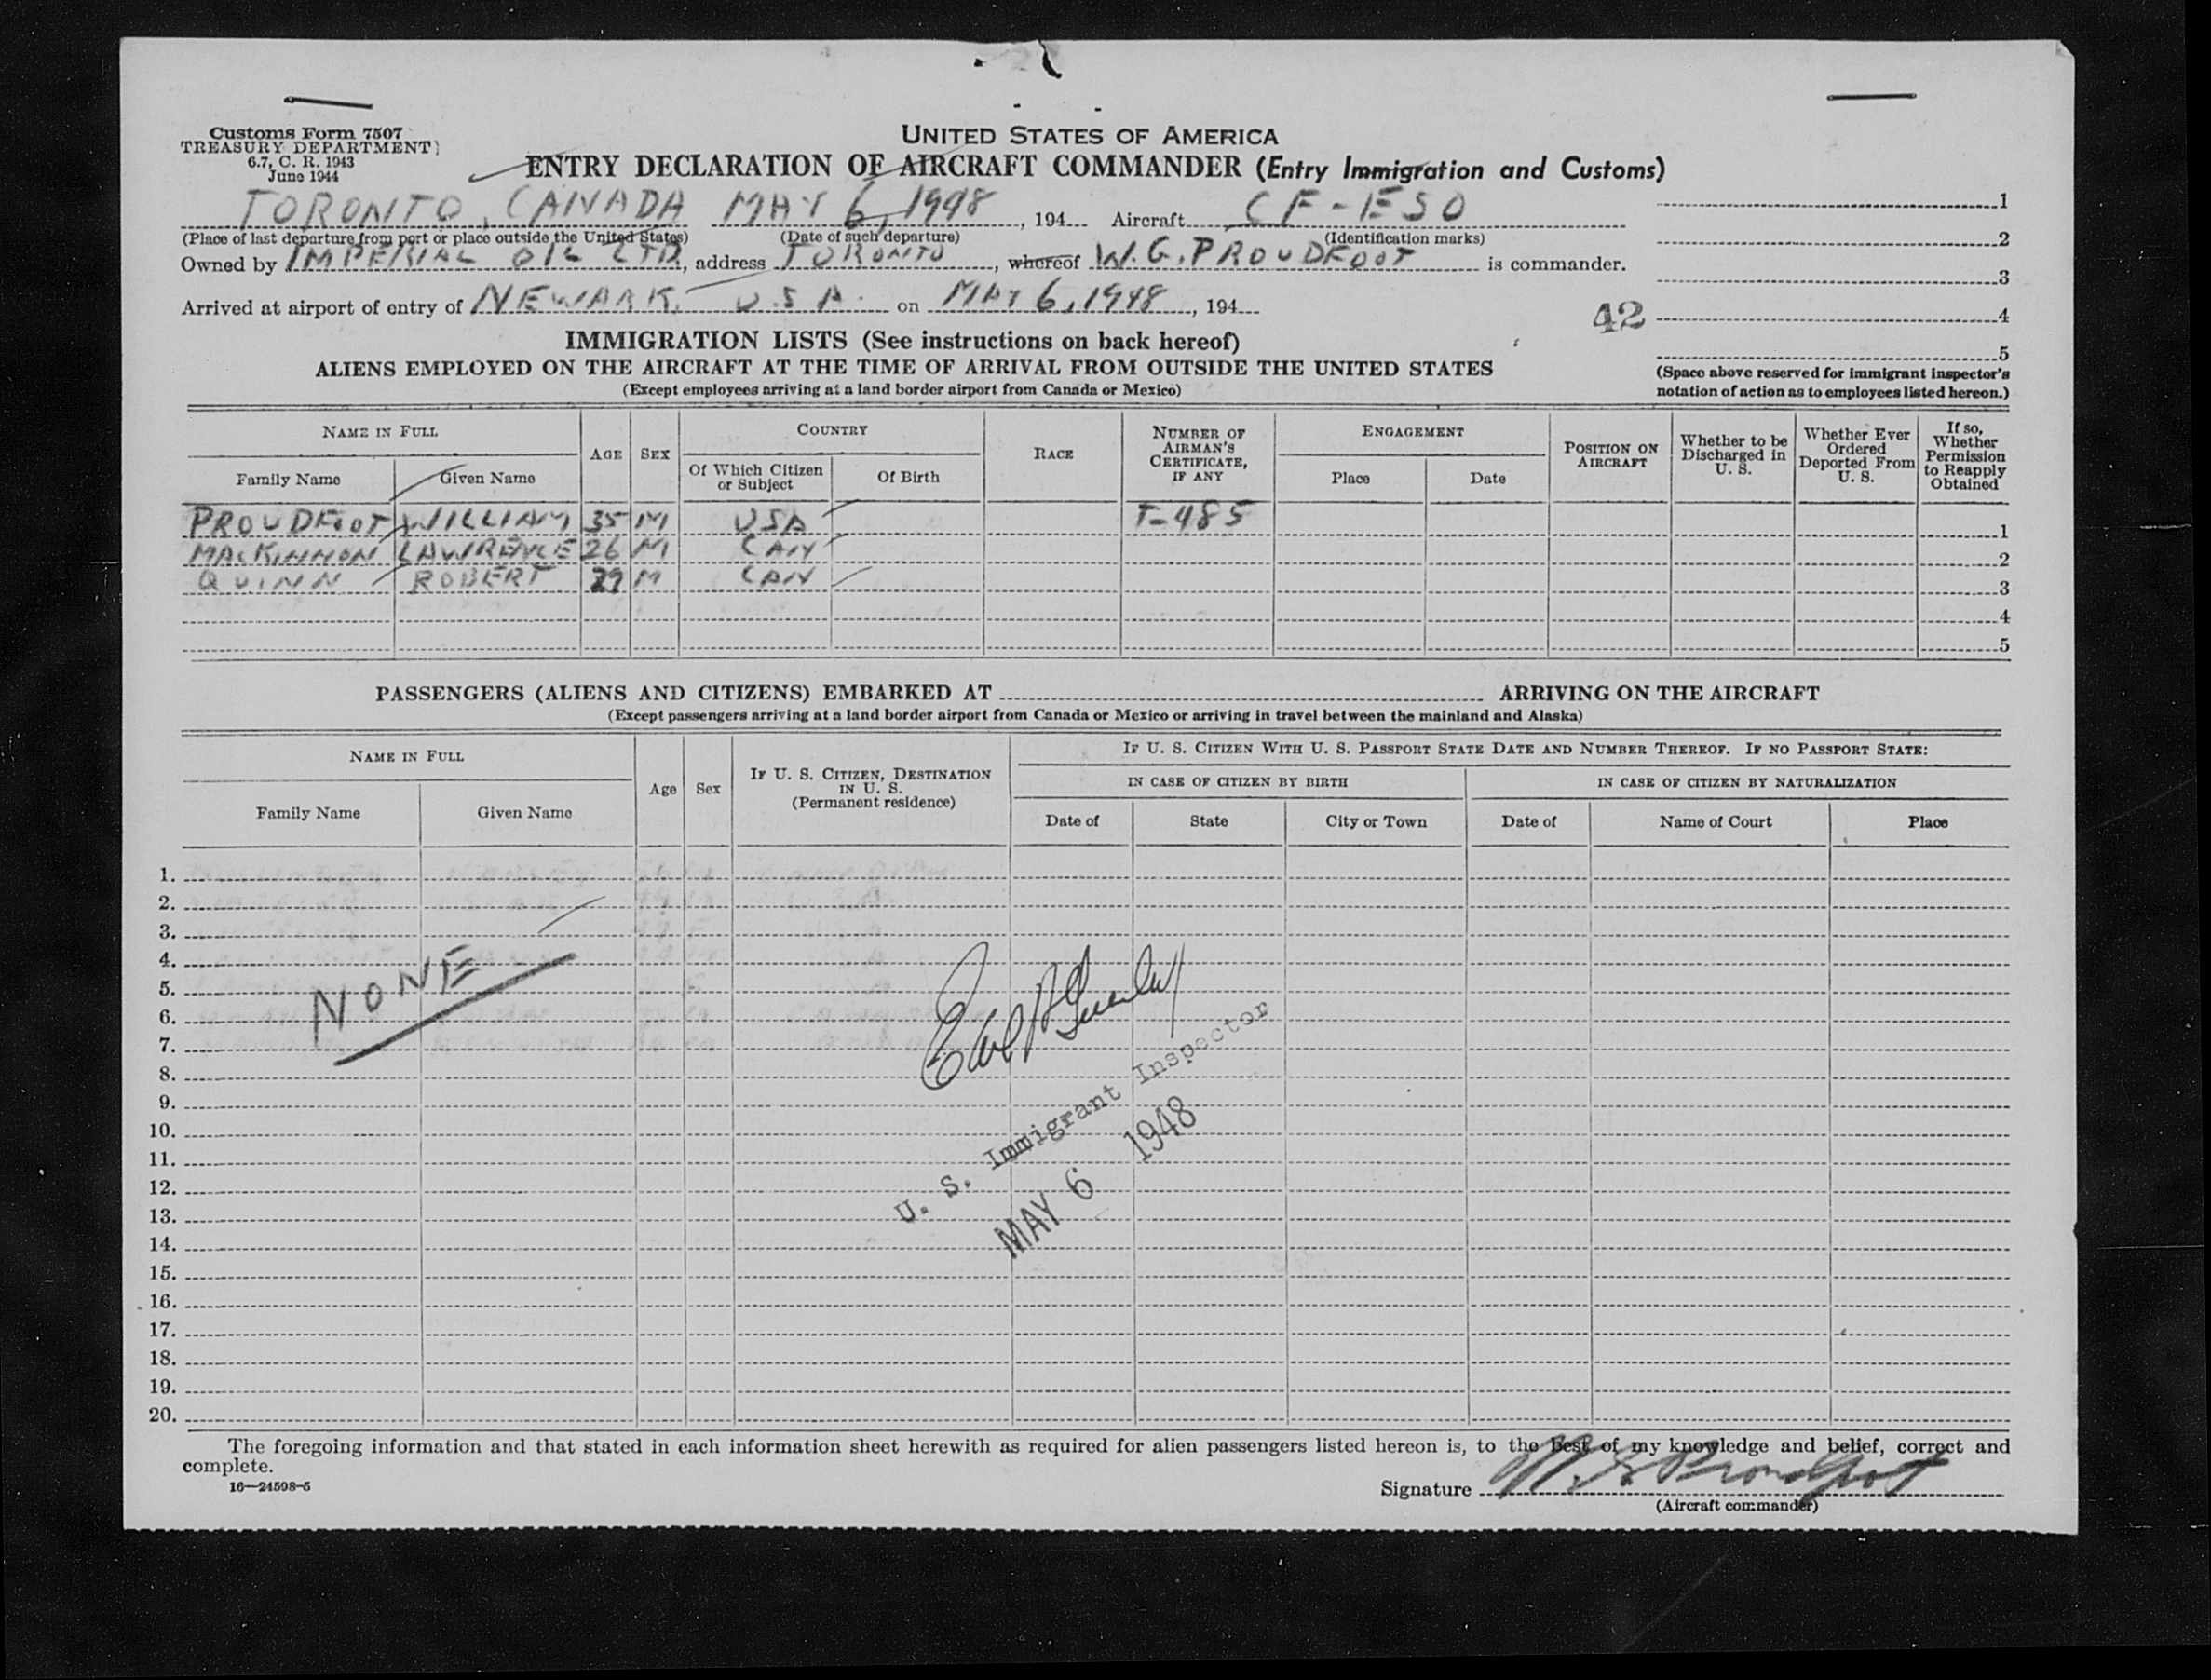 Customs Form 7507
TREASURY DEPARTMENT
6.7, C. R. 1943
June 1944
UNITED STATES OF AMERICA
ENTRY DECLARATION OF AIRCRAFT COMMANDER (Entry Immigration and Customs)
TORONTO, CANADA MAY 6, 1948, 194 Aircraft CF-ESO
(Place of last departure from port or place outside the United States) (Date of such departure) (Identification marks)
Owned by IMPERIAL OIL LTD, address TORONTO, whereof W.G. PROUDFOOT is commander.
Arrived at airport of entry of NEWARK, U.S.A. on MAY 6, 1948, 194
1
2
3
4
5
42
(Space above reserved for immigrant inspector's
notation of action as to employees listed hereon.)
IMMIGRATION LISTS (See instructions on back hereof)
ALIENS EMPLOYED ON THE AIRCRAFT AT THE TIME OF ARRIVAL FROM OUTSIDE THE UNITED STATES
(Except employees arriving at a land border airport from Canada or Mexico)
NAME IN FULL
Family Name Given Name
AGE SEX
COUNTRY
Of Which Citizen or Subject
Of Birth
RACE
NUMBER OF AIRMAN'S CERTIFICATE, IF ANY
ENGAGEMENT
Place Date
POSITION ON AIRCRAFT
Whether to be Discharged in U. S.
Whether Ever Ordered Deported From U. S.
If so, Whether Permission to Reapply Obtained
PROUDFOOT WILLIAM 35 M USA T-485 1
MACKINNON LAWRENCE 26 M CAN 2
QUINN ROBERT 29 M CAN 3
4
5
PASSENGERS (ALIENS AND CITIZENS) EMBARKED AT ARRIVING ON THE AIRCRAFT
(Except passengers arriving at a land border airport from Canada or Mexico or arriving in travel between the mainland and Alaska)
NAME IN FULL
Family Name Given Name
Age Sex
IF U. S. CITIZEN, DESTINATION IN U. S.
(Permanent residence)
IF U. S. CITIZEN WITH U. S. PASSPORT STATE DATE AND NUMBER THEREOF. IF NO PASSPORT STATE:
IN CASE OF CITIZEN BY BIRTH IN CASE OF CITIZEN BY NATURALIZATION
Date of State City or Town Date of Name of Court Place
1.
2.
3.
4.
5.
6.
7.
8.
9.
10.
11.
12.
13.
14.
15.
16.
17.
18.
19.
20.
NONE
U. S. Immigrant Inspector
MAY 6 1948
The foregoing information and that stated in each information sheet herewith as required for alien passengers listed hereon is, to the best of my knowledge and belief, correct and
complete.
16—24598-5
Signature W. G. Proudfoot
(Aircraft commander)